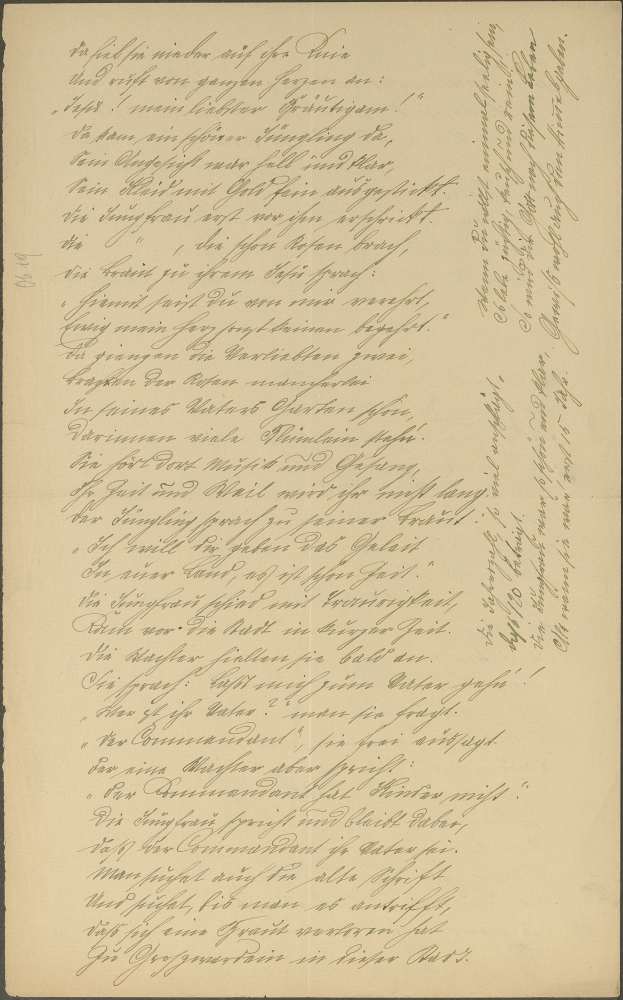 Da fiel sie nieder auf ihre Knie
Und ruft von ganzen Herzen an:
„Jesu! mein liebster Bräutigam!"
Da kam ein schöner Jüngling da,
Sein Angesicht war hell und klar,
Sein Kleid mit Gold fein ausgestickt.
Die Jungfrau erst vor ihm erschrickt.
Die " , die schon Rosen brach,
Die Braut zu ihrem Jesu sprach:
„Hiemit seist du von mir verehrt,
Ewig mein Herz sonst keinen begehrt."
Da giengen die Verliebten zwei,
Brachen der Rosen mancherlei
In seines Vaters Garten schön,
Darinnen viele Blümlein stehn.
Sie hört dort Musik und Gesang,
Ihr Zeit und Weil wird ihr nicht lang.
Der Jüngling sprach zu seiner Braut:
„Ich will dir geben das Geleit
In euer Land, es ist schon Zeit."
Die Jungfrau schied mit Traurigkeit,
Kam vor die Stadt in kurzer Zeit.
Die Wachter hielten sie bald an.
Sie sprach: „Laßt mich zum Vater gehn!
„Wer ist ihr Vater?" man sie fragt.
„Der Commandant", sie frei aussagt.
Der eine Wachter aber spricht:
„Der Kommandant hat Kinder nicht."
Die Jungfrau spricht und bleibt dabei,
Daß der Commandant ihr Vater sei.
Man suchet auch die alte Schrift
Und suchet, bis man es antrifft,
Daß sich eine Braut verloren hat
Zu Großwardein in dieser Stadt.
Die Jahrzahl so viel anzeigt,
120 beträgt.
Die Jungfrau war so schön und klar,
Als wenn sie wär erst 15 Jahr.
Wenn du willst einmal selig sein
So lebe züchtig, keusch und rein
So wird dir Gott nach diesem Leben
Gewiß